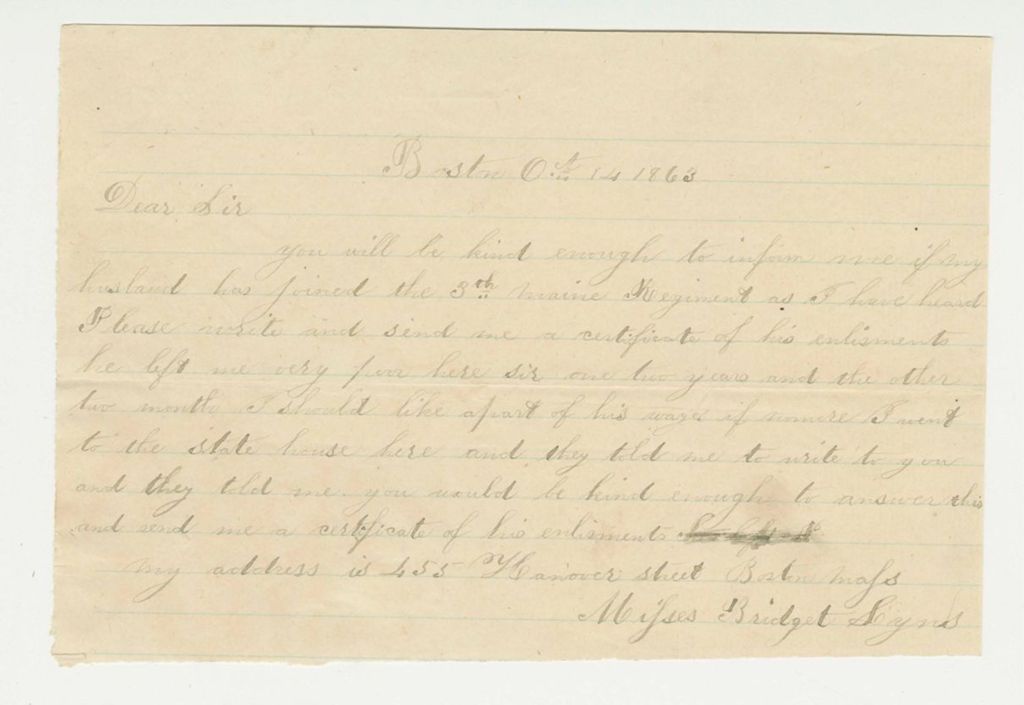 Boston Oct. 14 1863
Dear Sir
you will be kind enough to inform me if my
husband has joined the 3th maine Regiment as I have heard
Please write and send me a certificate of his enlisments
he left me very poor here sir one two years and the other
two months I should like apart of his wages if nomore I went
to the state house here and they told me to write to you
and they told me you would be kind enough to answer this
and send me a certificate of his enlisments
my address is 455 Hanover street Boston Mass
Misses Bridget Lyns